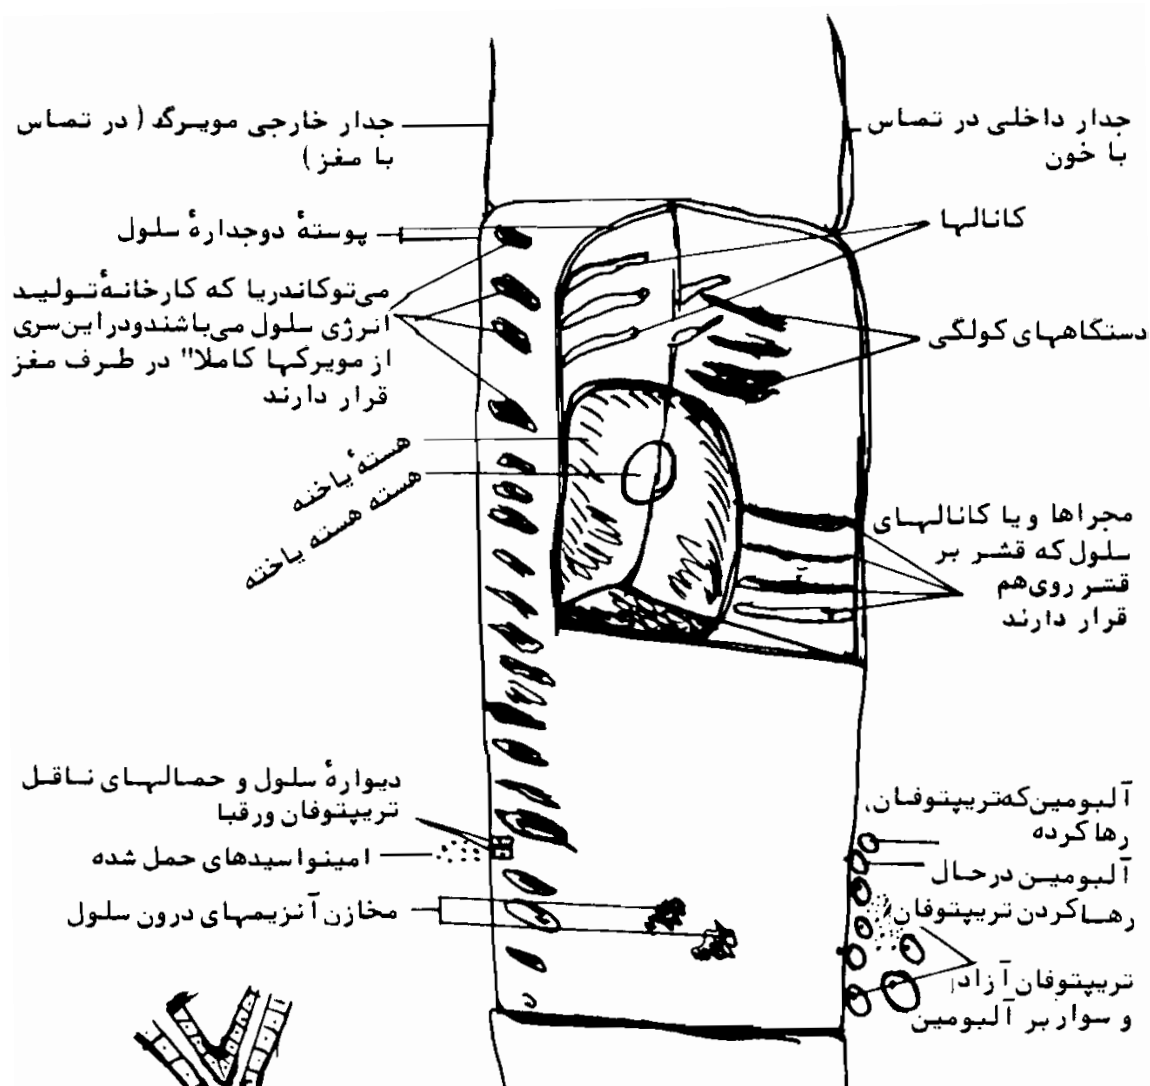 جدار خارجی مویرگ ( در تماس
با مغز )
پوستهٔ دوجدارهٔ سلول
می‌توکاندریا که کارخانهٔ تولید
انرژی سلول می‌باشندودراین‌سری
از مویرگها کاملا" در طرف مغز
قرار دارند
هستهٔ یاخته
هسته هسته یاخته
دیوارهٔ سلول و حمالهای ناقل
تریپتوفان ورقبا
امینواسیدهای حمل شده
مخازن آنزیمهای درون سلول
جدار داخلی در تماس
با خون
کانالها
دستگاههای کولگی
مجراها ویا کانالهای
سلول که قشر بر
قشر روی‌هم
قرار دارند
آلبومین‌که‌تریپتوفان
رها کرده
آلبومین درحال
رها کردن تریپتوفان
تریپتوفان آزاد
و سوار بر آلبومین